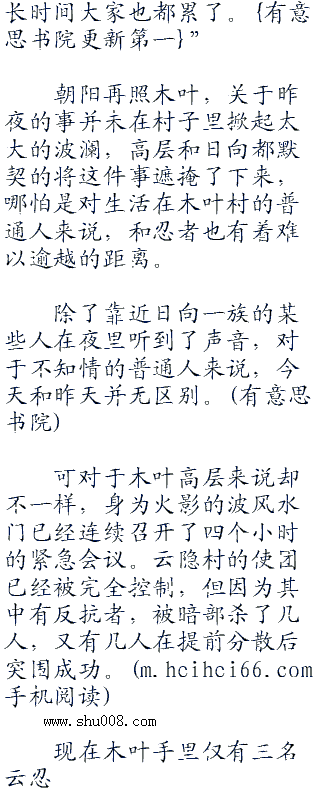 长时间大家也都累了。{有意
思书院更新第一}”
朝阳再照木叶，关于昨
夜的事并未在村子里掀起太
大的波澜，高层和日向都默
契的将这件事遮掩了下来，
哪怕是对生活在木叶村的普
通人来说，和忍者也有着难
以逾越的距离。
除了靠近日向一族的某
些人在夜里听到了声音，对
于不知情的普通人来说，今
天和昨天并无区别。(有意思
书院)
可对于木叶高层来说却
不一样，身为火影的波风水
门已经连续召开了四个小时
的紧急会议。云隐村的使团
已经被完全控制，但因为其
中有反抗者，被暗部杀了几
人，又有几人在提前分散后
突围成功。(m.hcihci66.com
手机阅读)
www.shu008.com
现在木叶手里仅有三名
云忍